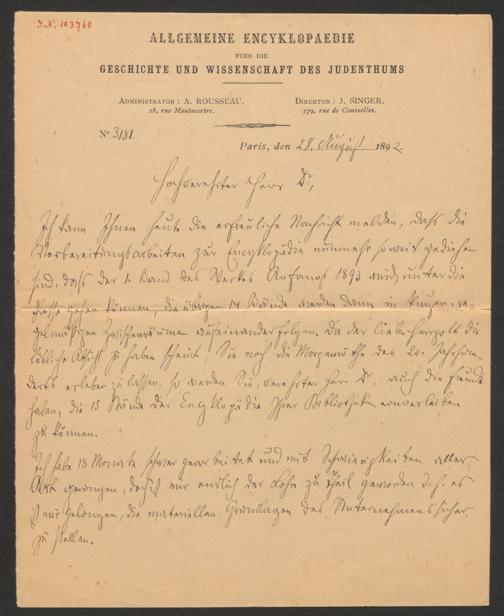 J.N. 103760
ALLGEMEINE ENCYKLOPAEDIE
FUER DIE
GESCHICHTE UND WISSENSCHAFT DES JUDENTHUMS
ADMINISTRATOR : A. ROUSSEAU.
18, rue Montmartre.
DIREKTOR : J. SINGER.
179, rue de Courcelles.
No 3181.
Paris, den 28. August 1892.
Hochverehrter Herr Dr,
Ich kann Ihnen heute die erfreuliche Nachricht melden, dass die
Vorbereitungsarbeiten zur Encyklopädie nunmehr so weit gediehen
sind, dass der 1. Band des Werkes Anfangs 1893 wird unter die
Presse gehen können; die übrigen 14 Bände werden dann in kurzen, re-
gelmässigen Zwischenräumen aufeinanderfolgen. Da der liebe Herrgott die
löbliche Absicht zu haben scheint, Sie noch die Morgenröthe des 20. Jahrhun-
derts erleben zu lassen, so werden Sie, verehrter Herr Dr, auch die Freude
haben, die 15 Bände der Encyklopädie Ihrer Bibliothek einverleiben
zu können.
Ich habe 18 Monate schwer gearbeitet und mit Schwierigkeiten aller
Art gerungen, doch ist mir endlich der Lohn zu Theil geworden d.h. es
ist mir gelungen, die materiellen Grundlagen des Unternehmens sicher
zu stellen.